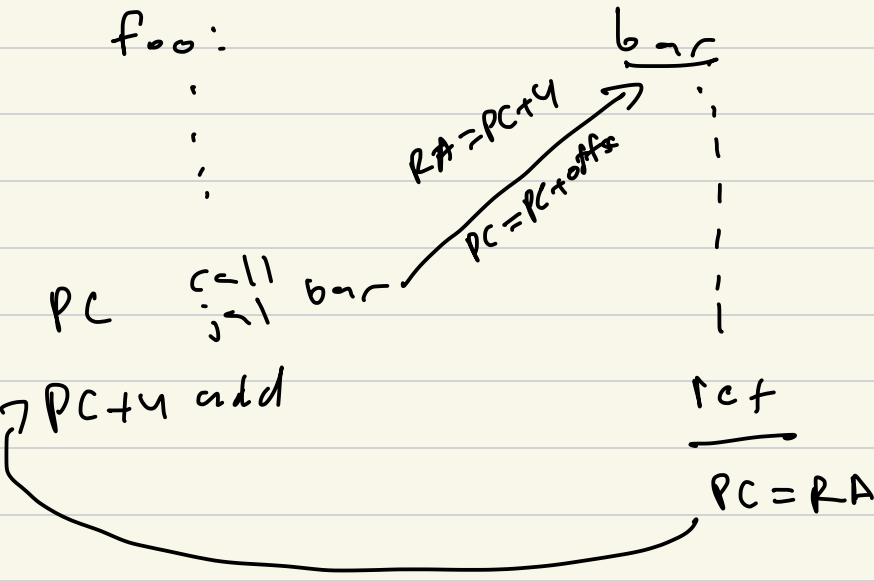 foo:
bar
RA=PC+4
PC=PC+offs
call
PC jal bar
PC+4 add
ret
PC=RA